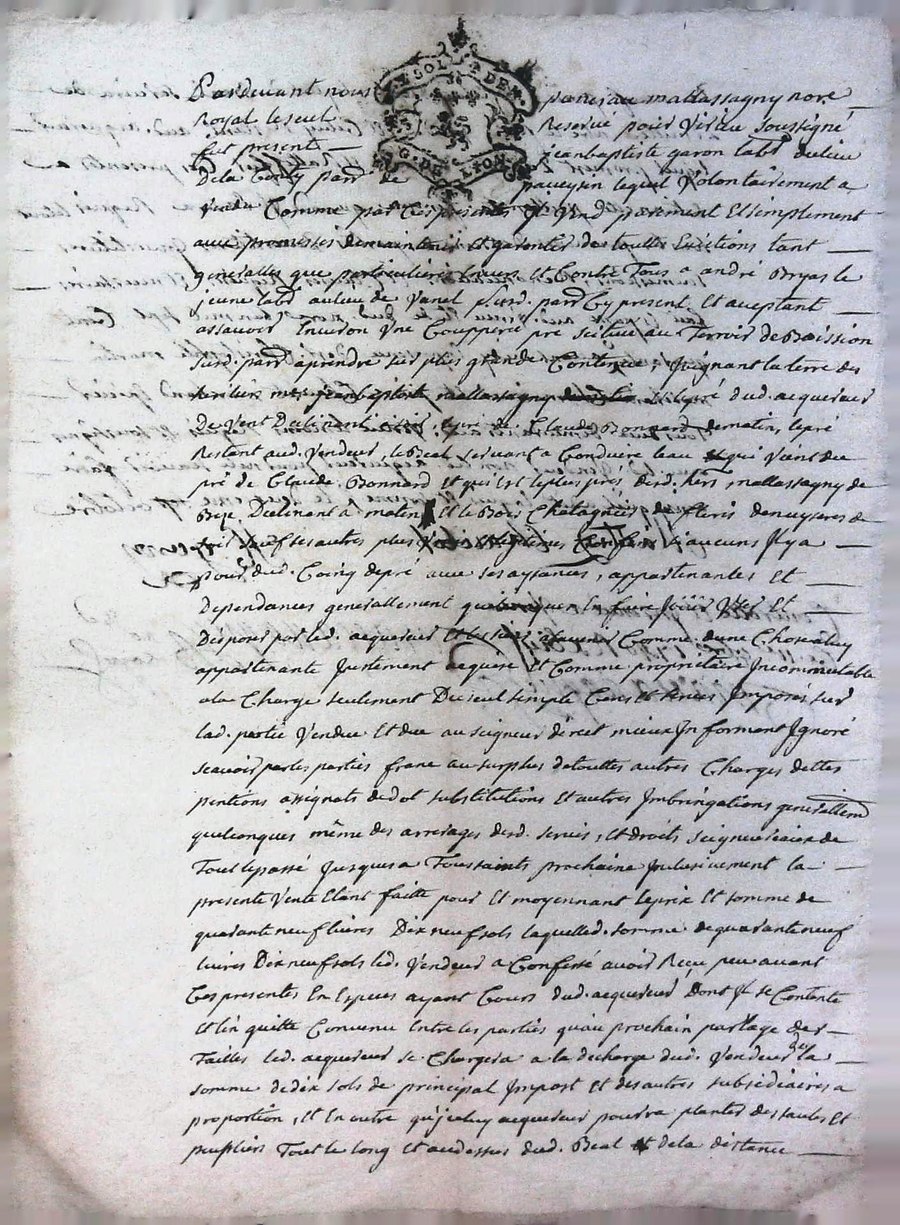 UN SOL 4 DEN.
G. DE LION
Pardevant nous panerau mallassagny nore
Royal le seul Reservé pour Virieu soussigné
fut present jeanbaptiste garon labr du lieu
De la parr de paveysin lequel Volontairement a
Vendu Comme par Ces presentes Il Vend purement Et simplement
aux promesses de maintenir Et garentir de touttes Evictions tant
generalles que particulieres Envers Et Contre Tous a andré Bryas le
jeune labr au lieu de Vanel susd. parr Cy present Et aceptant
assavoir Environ Une Coupperée pré scituée au Terroir de Boission
susd. parr aprendre sur plus grande Contenue, joignant la terre des
heritiers mre jeanbaptiste mallassagny Et le pré dud. acquereur
De Vent Declinant a soir, le pré de Claude Bonnard de matin, le pré
Restant aud. Vendeur, le Beal servant a Conduire leau qui Vient du
pré de Claude Bonnard Et qui Est le plus prés desd. hers mallassagny de
Bize Declinant a matin Et le Bois Chatagnier de
soir sauf ses autres plus Confins si aucuns Il y a
pour dud. Coing de pré aux ses aysances, appartenantes Et
Dependances generallement quelconques En faire Joüir User Et
Disposer par led. acquereur Et les siens a lavenir Comme dune Chose a luy
appartenante Justement acquise Et Comme propriétaire Incommutable
a la Charge seulement Du seul simple Cens Et servis Imposés sur
lad. partie Vendue Et due au seigneur direct mieux Informant Ignoré
scavoir par les parties franc au surplus de touttes autres Charges dettes
pentions assignats de dot substitutions Et autres Imbringations generallemt
quelconques même des arrerages desd. servis, Et droits seigneuriaux de
Tout le passé Jusques a Toussaints prochaine Inclusivement la
presente Vente Etant faitte pour Et moyennant le prix Et somme de
quarante neuf livres Dix neuf sols laquelled. somme de quarante neuf
livres Dix neuf sols led. Vendeur a Confessé avoir Reçu peu avant
Ces presentes En Especes ayant Cours dud. acquereur Dont Il se Contente
Et l'en quitte Convenu Entre les parties qu'au prochain partage des
Tailles led. acquereur se Chargera a la decharge dud. Vendeur de la
somme de dix sols de principal Impost Et des autres subsidiaires a
proportion, Et En outre qu'jceluy acquereur pourra planter des saules Et
peupliers Tout le long Et audessus dud. Beal de la distance